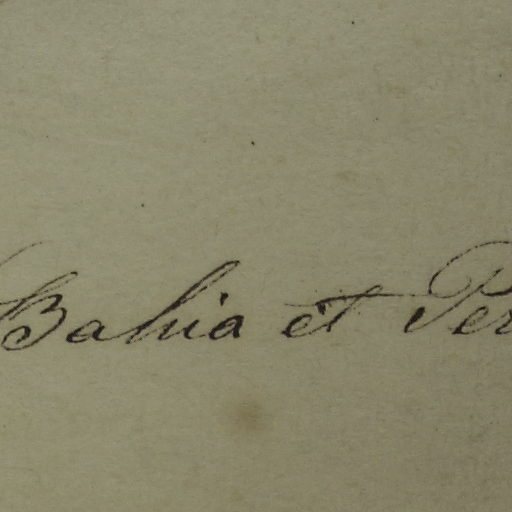 Bahia et Per